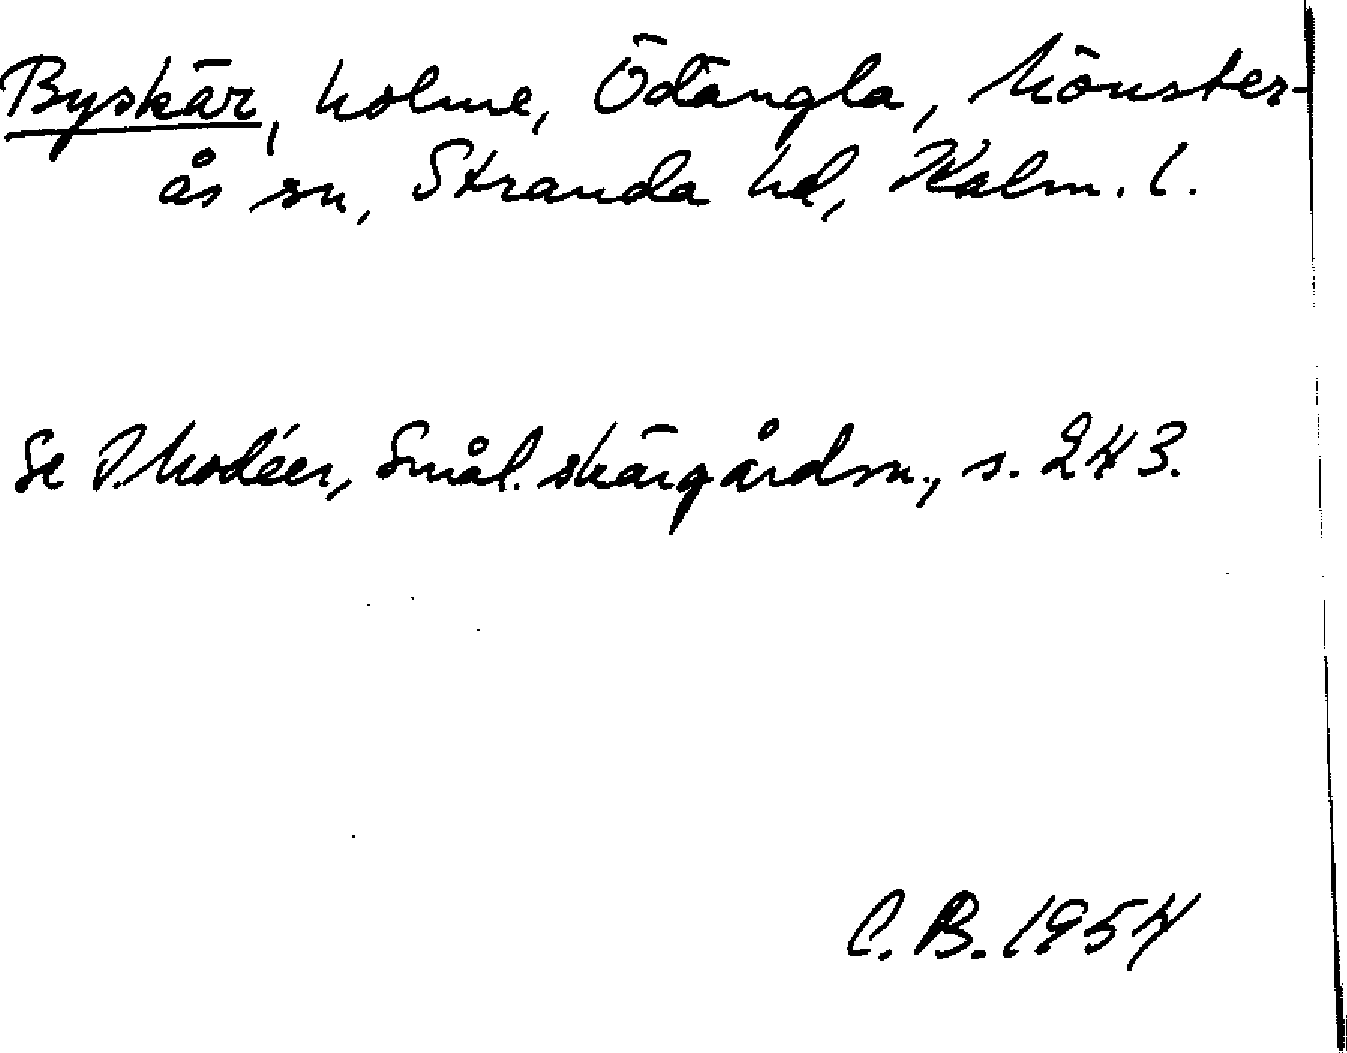 Byskär, holme, Ödängla, Mönster-
ås sn, Stranda hd, Kalm. l.
Se I. Modéer, Smål. skärgårdsn., s. 243.
C. B. 1954